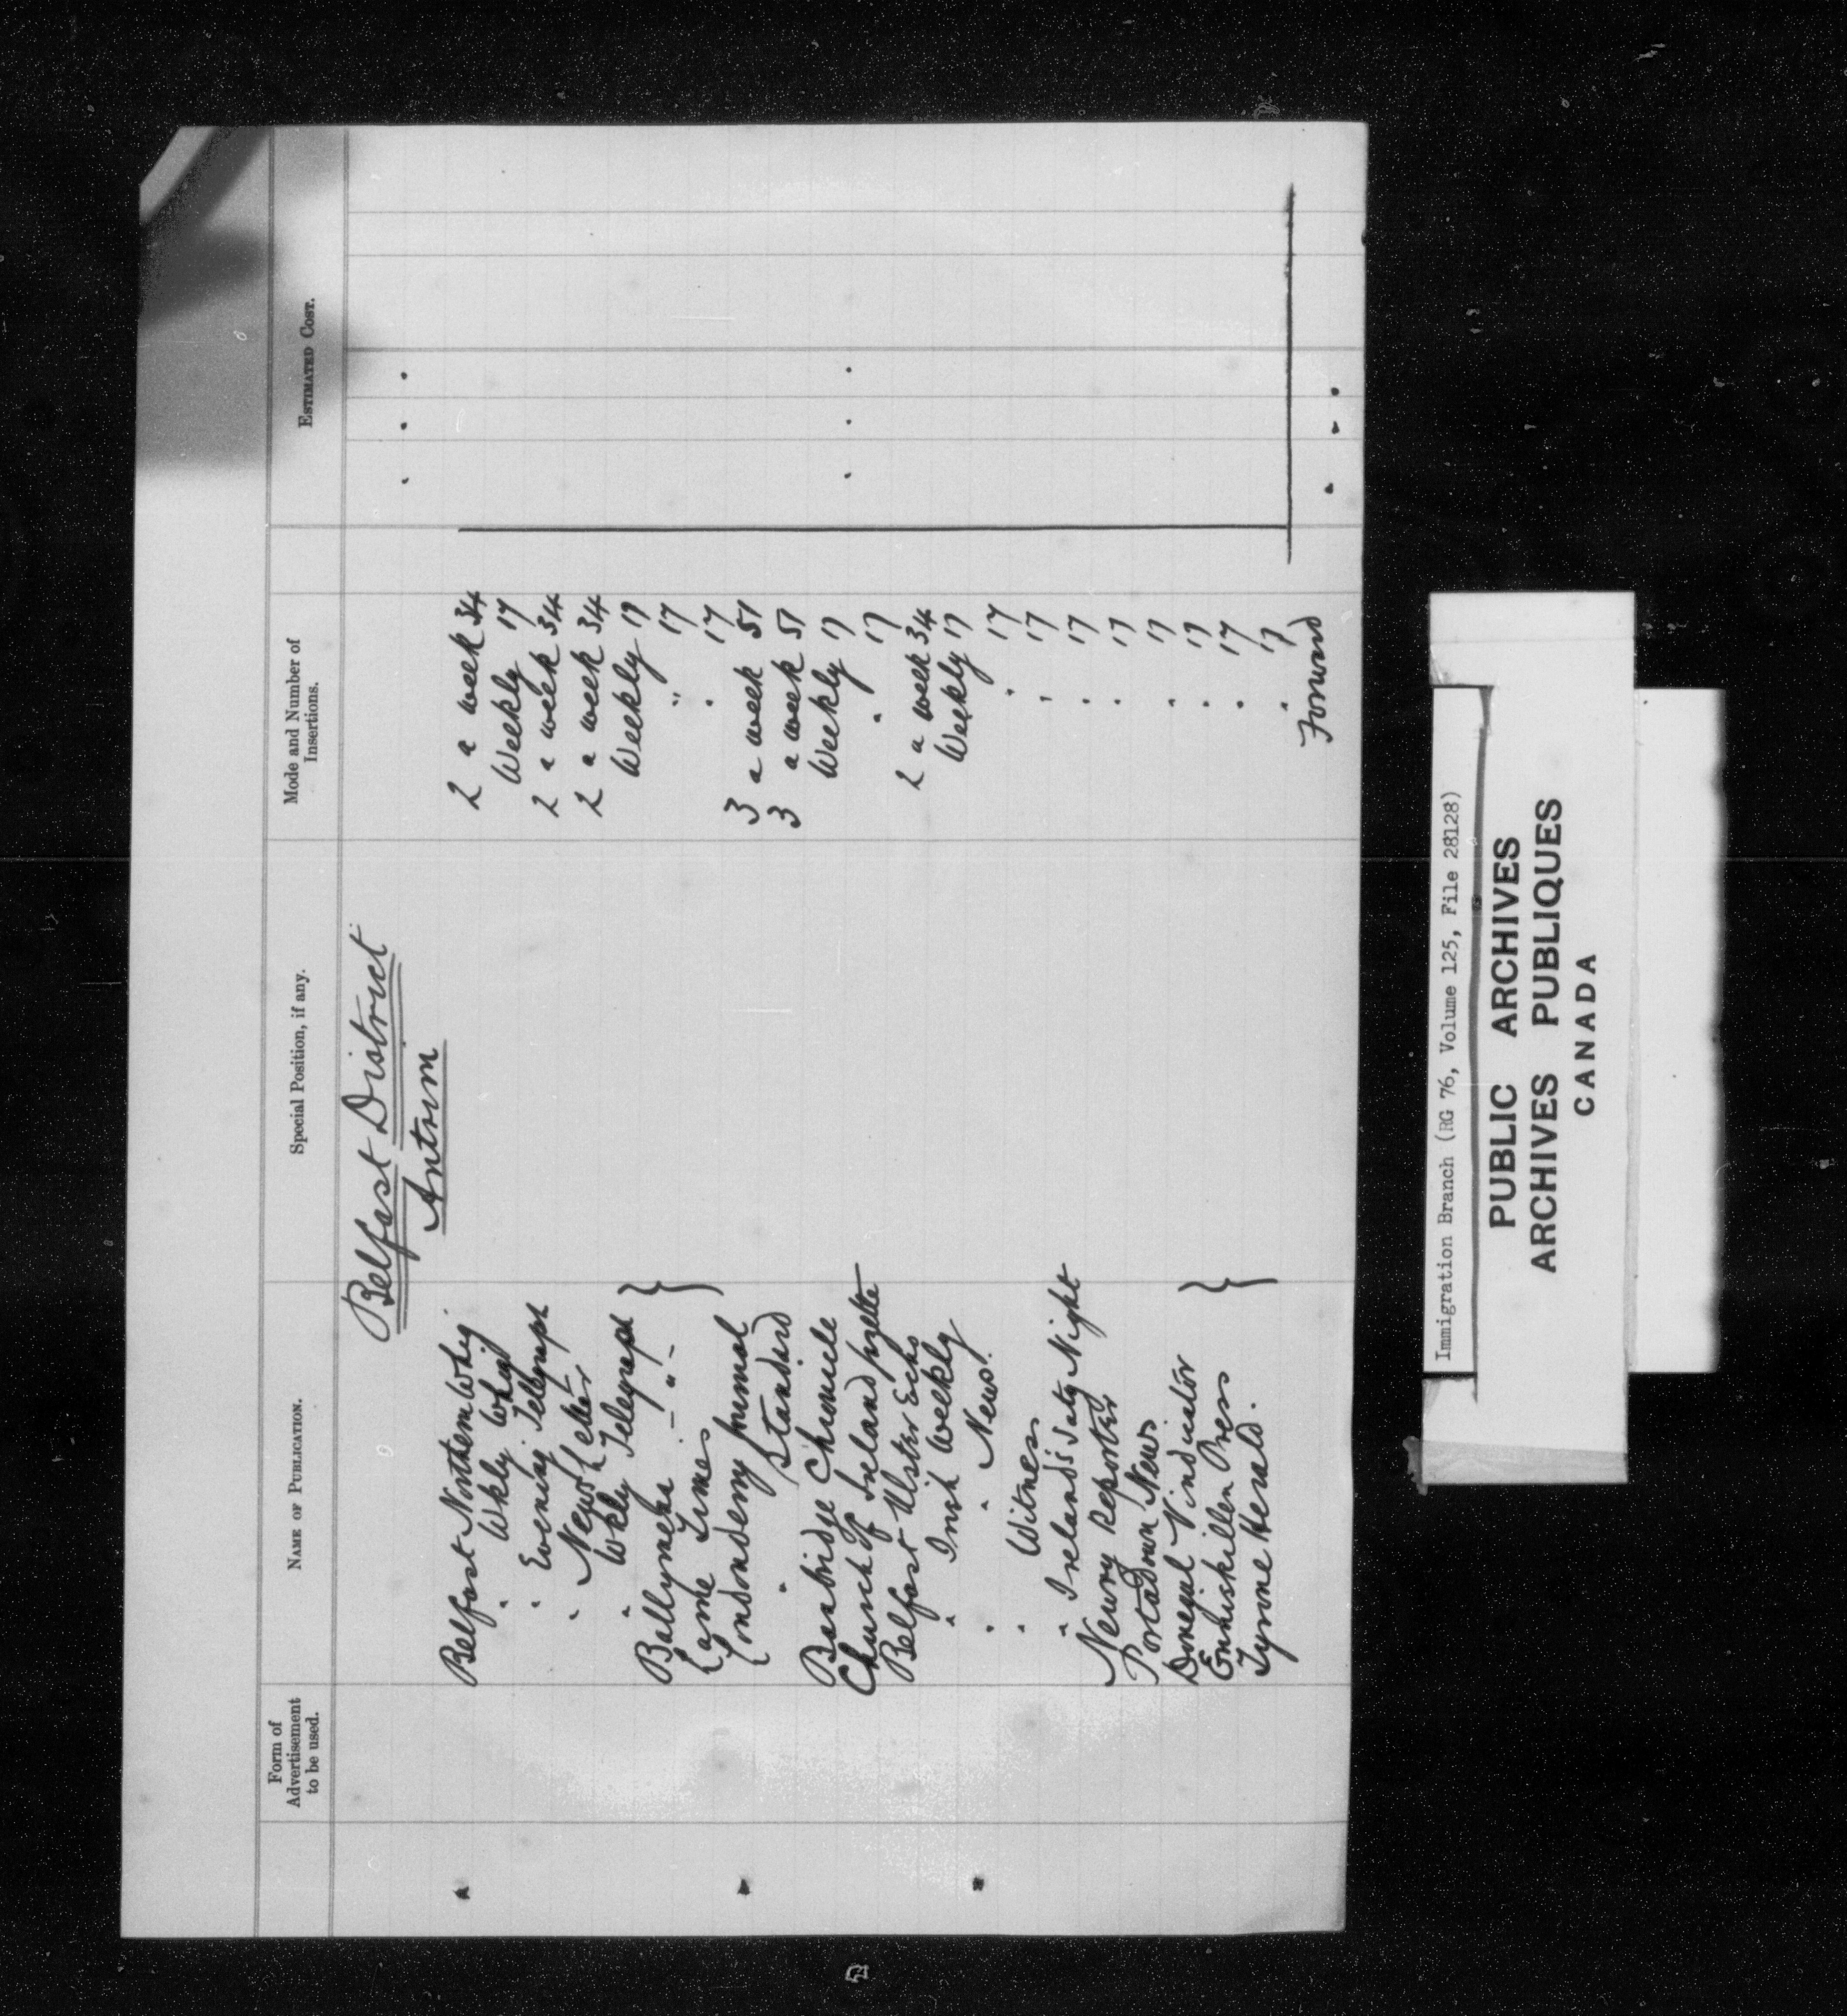 Form of Advertisement to be used. NAME OF PUBLICATION. Special Position, if any. Mode and Number of Insertions. ESTIMATED COST.
Belfast District
Antrim
Belfast Northern Whig 2 a week 34
" Wkly Whig Weekly 17
" Evening Telegraph 2 a week 34
" News Letter 2 a week 34
" Wkly Telegraph } Weekly 17
Ballymena - " - } " 17
Larne Times } " 17
Londonderry Journal 3 a week 51
" Standard 3 a week 51
Banbridge Chronicle Weekly 17
Church of Ireland Gazette " 17
Belfast Ulster Echo 2 a week 34
" Irish Weekly Weekly 17
" " News " 17
" Witness " 17
" Ireland's Saty Night " 17
Newry Reporter " 17
Portadown News " 17
Donegal Vindicator } " 17
Enniskillen Press } " 17
Tyrone Herald. } " 17
Forward
Immigration Branch (RG 76, Volume 125, File 28128)
PUBLIC ARCHIVES
ARCHIVES PUBLIQUES
CANADA